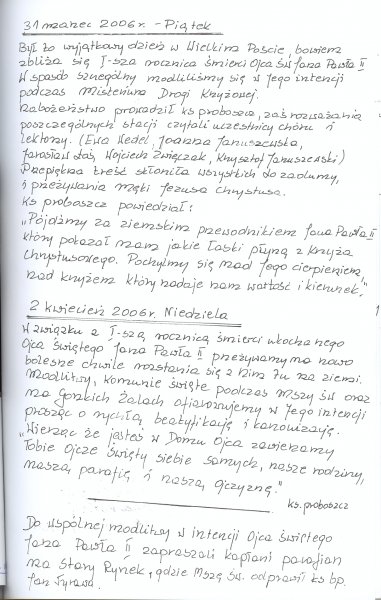 31 marzec 2006 r. - Piątek
Był to wyjątkowy dzień w Wielkim Poście, bowiem
zbliża się I-sza rocznica śmierci Ojca Św. Jana Pawła II
W sposób szczególny modliliśmy się w Jego intencji
podczas Misterium Drogi Krzyżowej.
Nabożeństwo prowadził ks. proboszcz, zaś rozważania
poszczególnych stacji czytali uczestnicy chóru i
lektorzy. (Ewa Hedel, Joanna Januszewska,
Jarosław Staś, Wojciech Zwięrzak, Krzysztof Januszewski)
Przepiękna treść skłoniła wszystkich do zadumy,
i przeżywania męki Jezusa Chrystusa.
Ks proboszcz powiedział:
"Pójdźmy za ziemskim przewodnikiem Jana Pawła II
który pokazał nam jakie łaski płyną z Krzyża
Chrystusowego. Pochylmy się nad Jego cierpieniem,
nad krzyżem który nadaje nam wartość i kierunek."
2 kwiecień 2006r. Niedziela
W związku z I-szą rocznicą śmierci ukochanego
Ojca Świętego Jana Pawła II przeżywamy na nowo
bolesne chwile rozstania się z Nim tu na ziemi.
Modlitwy, komunie święte podczas Mszy Św oraz
na Gorzkich Żalach ofiarowujemy w Jego intencji
prosząc o rychłą beatyfikację i kanonizację.
"Wierząc że jesteś w Domu Ojca zawierzamy
Tobie Ojcze Święty siebie samych, nasze rodziny,
naszą parafię i naszą ojczyznę."
ks. proboszcz
Do wspólnej modlitwy w intencji Ojca Świętego
Jana Pawła II zapraszali kapłani parafian
na Stary Rynek, gdzie Mszę Św. odprawił ks bp.
Jan Tyrawa.